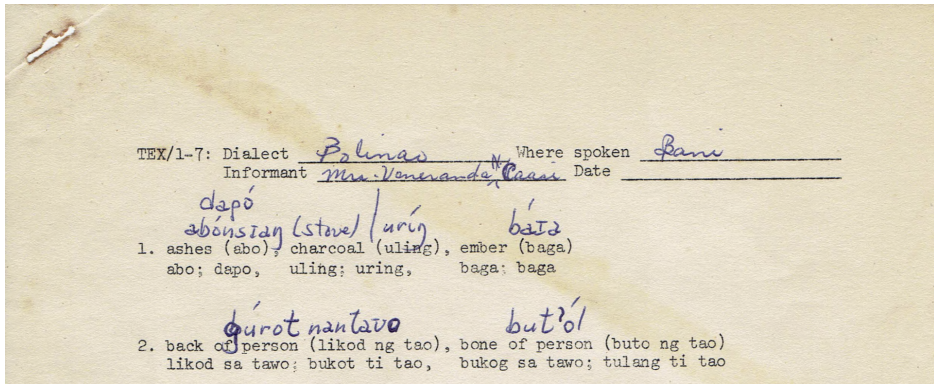 TEX/1-7: Dialect Bolinao Where spoken Bani
Informant Mrs. Veneranda N. Caasi Date
dapó
abónsɪaŋ (stove) / uríŋ báɪa
1. ashes (abo); charcoal (uling), ember (baga)
abo; dapo, uling; uring, baga; baga
gúrot nan tavo but?ól
2. back of person (likod ng tao), bone of person (buto ng tao)
likod sa tawo; bukot ti tao, bukog sa tawo; tulang ti tao